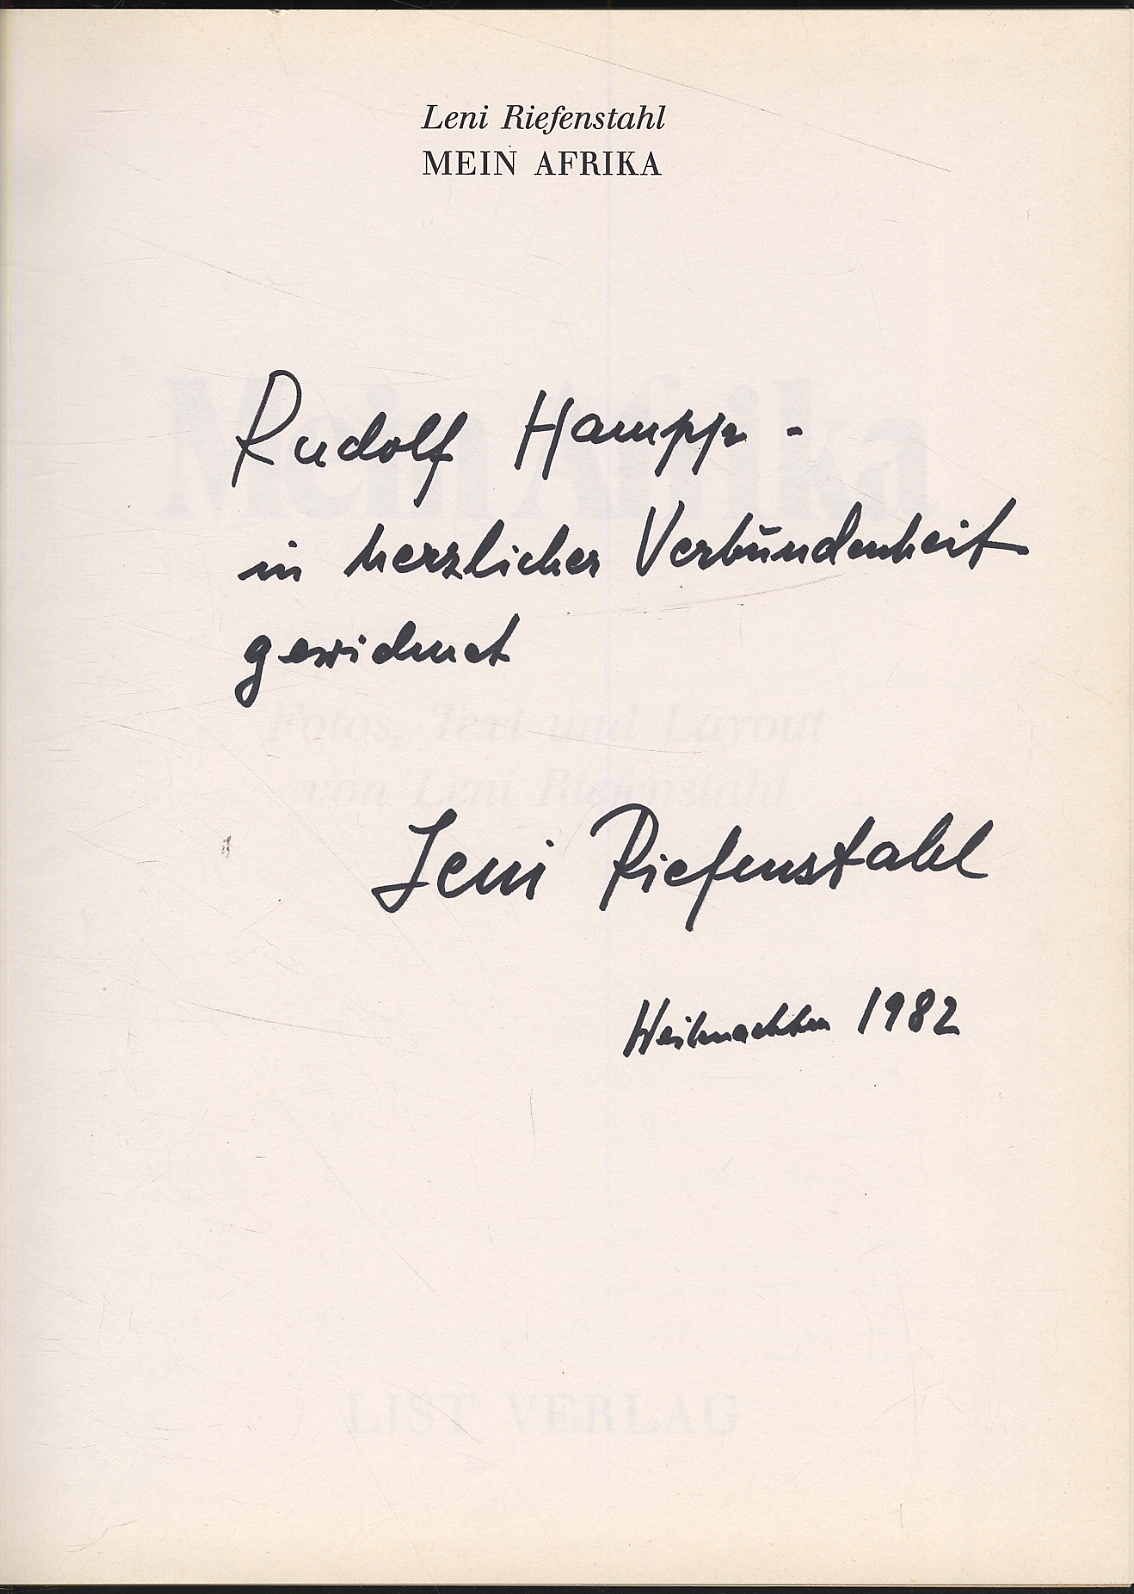 Leni Riefenstahl
MEIN AFRIKA
Rudolf Hampp -
in herzlicher Verbundenheit
gewidmet
Mein Afrika
Fotos, Text und Layout
von Leni Riefenstahl
Leni Riefenstahl
Weihnachten 1982
LIST VERLAG